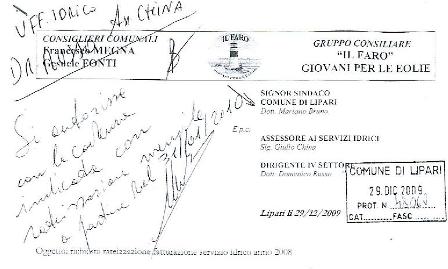 UFF. IDRICO
Ass CHINA
CONSIGLIERI COMUNALI
Francesco MEGNA
Gesuele FONTI
IL FARO
GRUPPO CONSILIARE
"IL FARO"
GIOVANI PER LE EOLIE
SIGNOR SINDACO
COMUNE DI LIPARI
Dott. Mariano Bruno
E p.c.
ASSESSORE AI SERVIZI IDRICI
Sig. Giulio China
DIRIGENTE IV SETTORE
Dott. Domenico Russo
Si autorizza
con le
indicata con
rateizzazione mensile
a partire dal 31/01/2010
COMUNE DI LIPARI
29. DIC 2009
PROT. N.
CAT. FASC
Lipari lì 29/12/2009
Oggetto: richiesta rateizzazione fatturazione servizio idrico anno 2008